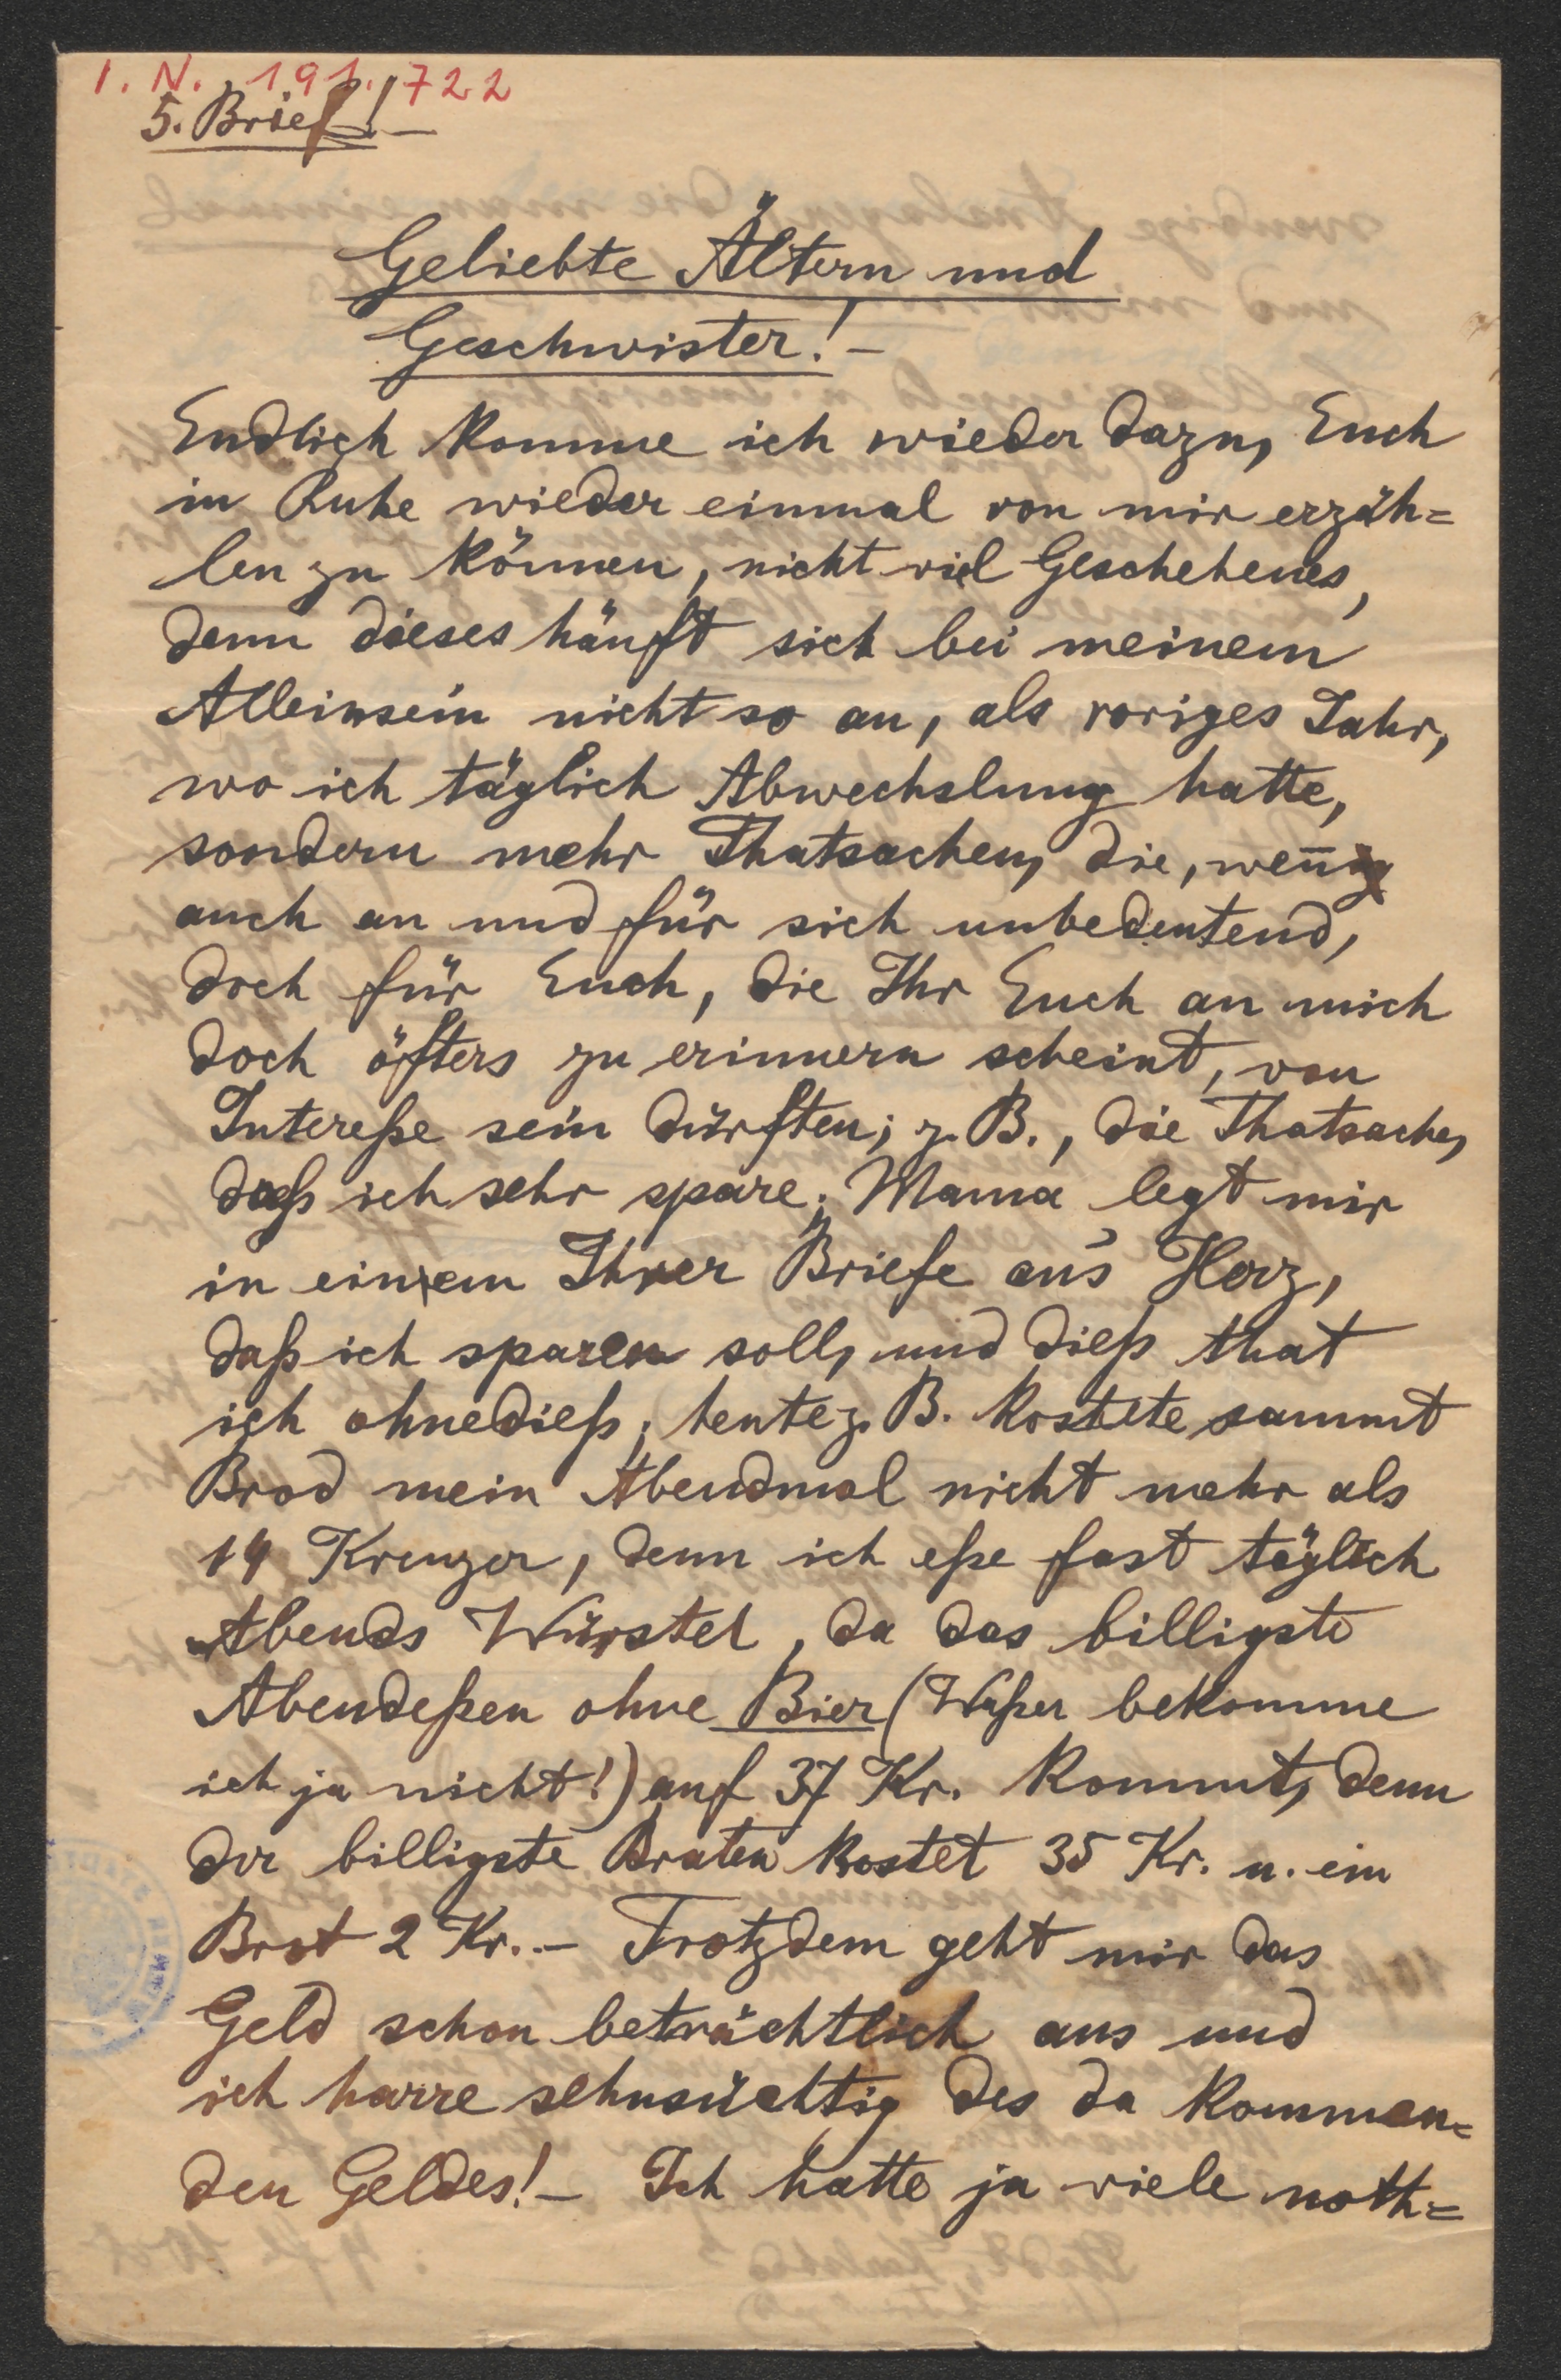 I. N. 191.722
5. Brief!-
Geliebte Ältern und
Geschwister!-
Endlich komme ich wieder dazu, Euch
in Ruhe wieder einmal von mir erzäh=
len zu können, nicht viel Geschehenes,
denn dieses häuft sich bei meinem
Alleinsein nicht so an, als voriges Jahr,
wo ich täglich Abwechslung hatte,
sondern mehr Thatsachen, die, wen̄
auch an und für sich unbedeutend,
doch für Euch, die Ihr Euch an mich
doch öfters zu erinnern scheint, von
Интereße sein dürften; z. B., die Thatsache,
daß ich sehr spare; Mama legt mir
in einem Ihrer Briefe an's Herz,
daß ich sparen soll, und dieß that
ich ohnedieß; heute z. B. kostete sammt
Brod mein Abendmal nicht mehr als
14 Kreuzer, denn ich eße fast täglich
Abends Würstel, da das billigste
Abendeßen ohne Bier (Waßer bekomme
ich ja nicht!) auf 37 Kr. kommt, denn
der billigste Braten kostet 35 Kr. u. ein
Brot 2 Kr. - Trotzdem geht mir das
Geld schon beträchtlich aus und
ich harre sehnsüchtig des da kommen=
den Geldes! - Ich hatte ja viele noth=